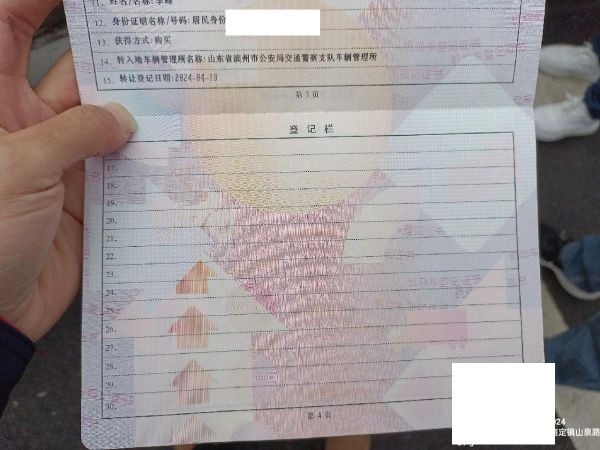 11. 姓名/名称: 李峰
12. 身份证明名称/号码: 居民身份
13. 获得方式: 购买
14. 转入地车辆管理所名称: 山东省滨州市公安局交通警察支队车辆管理所
15. 转让登记日期: 2024-04-19
第 3 页
登 记 栏
17.
18.
19.
20.
21.
22.
23.
24.
25.
26.
27.
28.
29.
30.
第 4 页
024
定镇山泉路